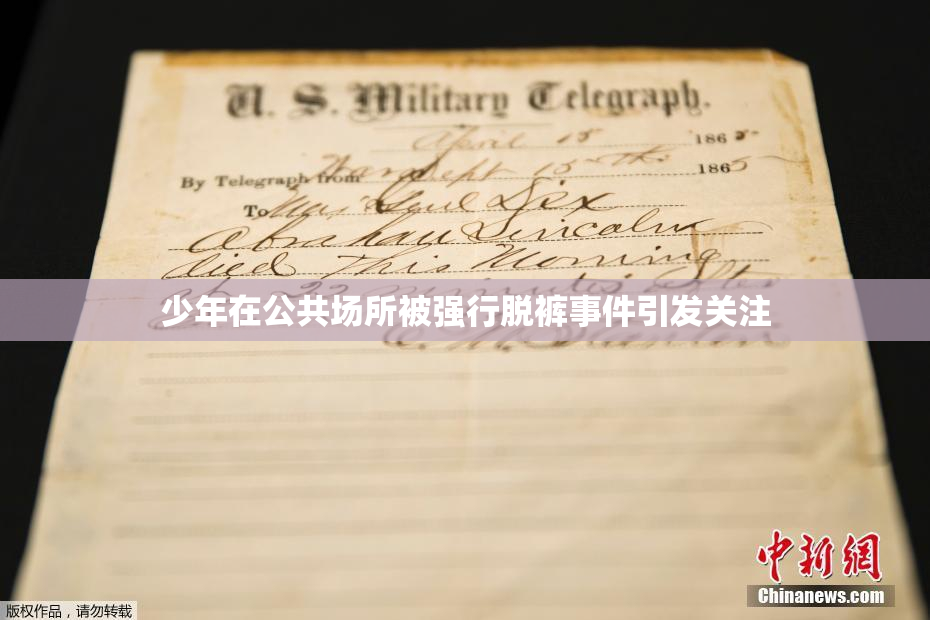 U. S. Military Telegraph.
April 15 1865
By Telegraph from War Dept 15th 1865
To Maj Genl Dix
Abraham Lincoln
died This Morning
at 22 minutes after
少年在公共场所被强行脱裤事件引发关注
E. M. Stanton
中新网
Chinanews.com
版权作品，请勿转载